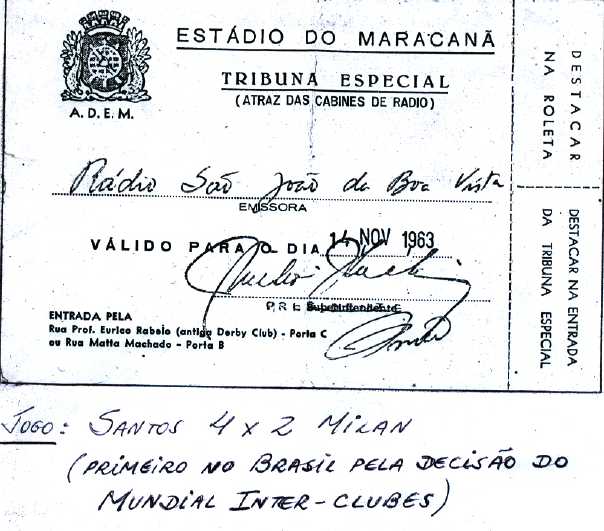 ESTÁDIO DO MARACANÃ
TRIBUNA ESPECIAL
(ATRAZ DAS CABINES DE RADIO)
A. D. E. M.
Rádio São João da Boa Vista
EMISSORA
VÁLIDO PARA O DIA 14 NOV 1963
Superintendente
ENTRADA PELA
Rua Prof. Eurico Rabelo (antigo Derby Club) - Porta C
ou Rua Matta Machado - Porta B
DESTACAR
NA ROLETA
DESTACAR NA ENTRADA
DA TRIBUNA ESPECIAL
JOGO: SANTOS 4 x 2 MILAN
(PRIMEIRO NO BRASIL PELA DECISÃO DO
MUNDIAL INTER-CLUBES)